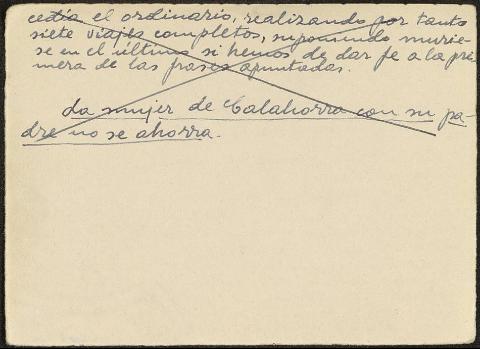 cedía el ordinario, realizando por tanto
siete viajes completos, suponiendo murie-
se en el último si hemos de dar fe a la pri
mera de las frases apuntadas.
La mujer de Calahorra con su pa-
dre no se ahorra.